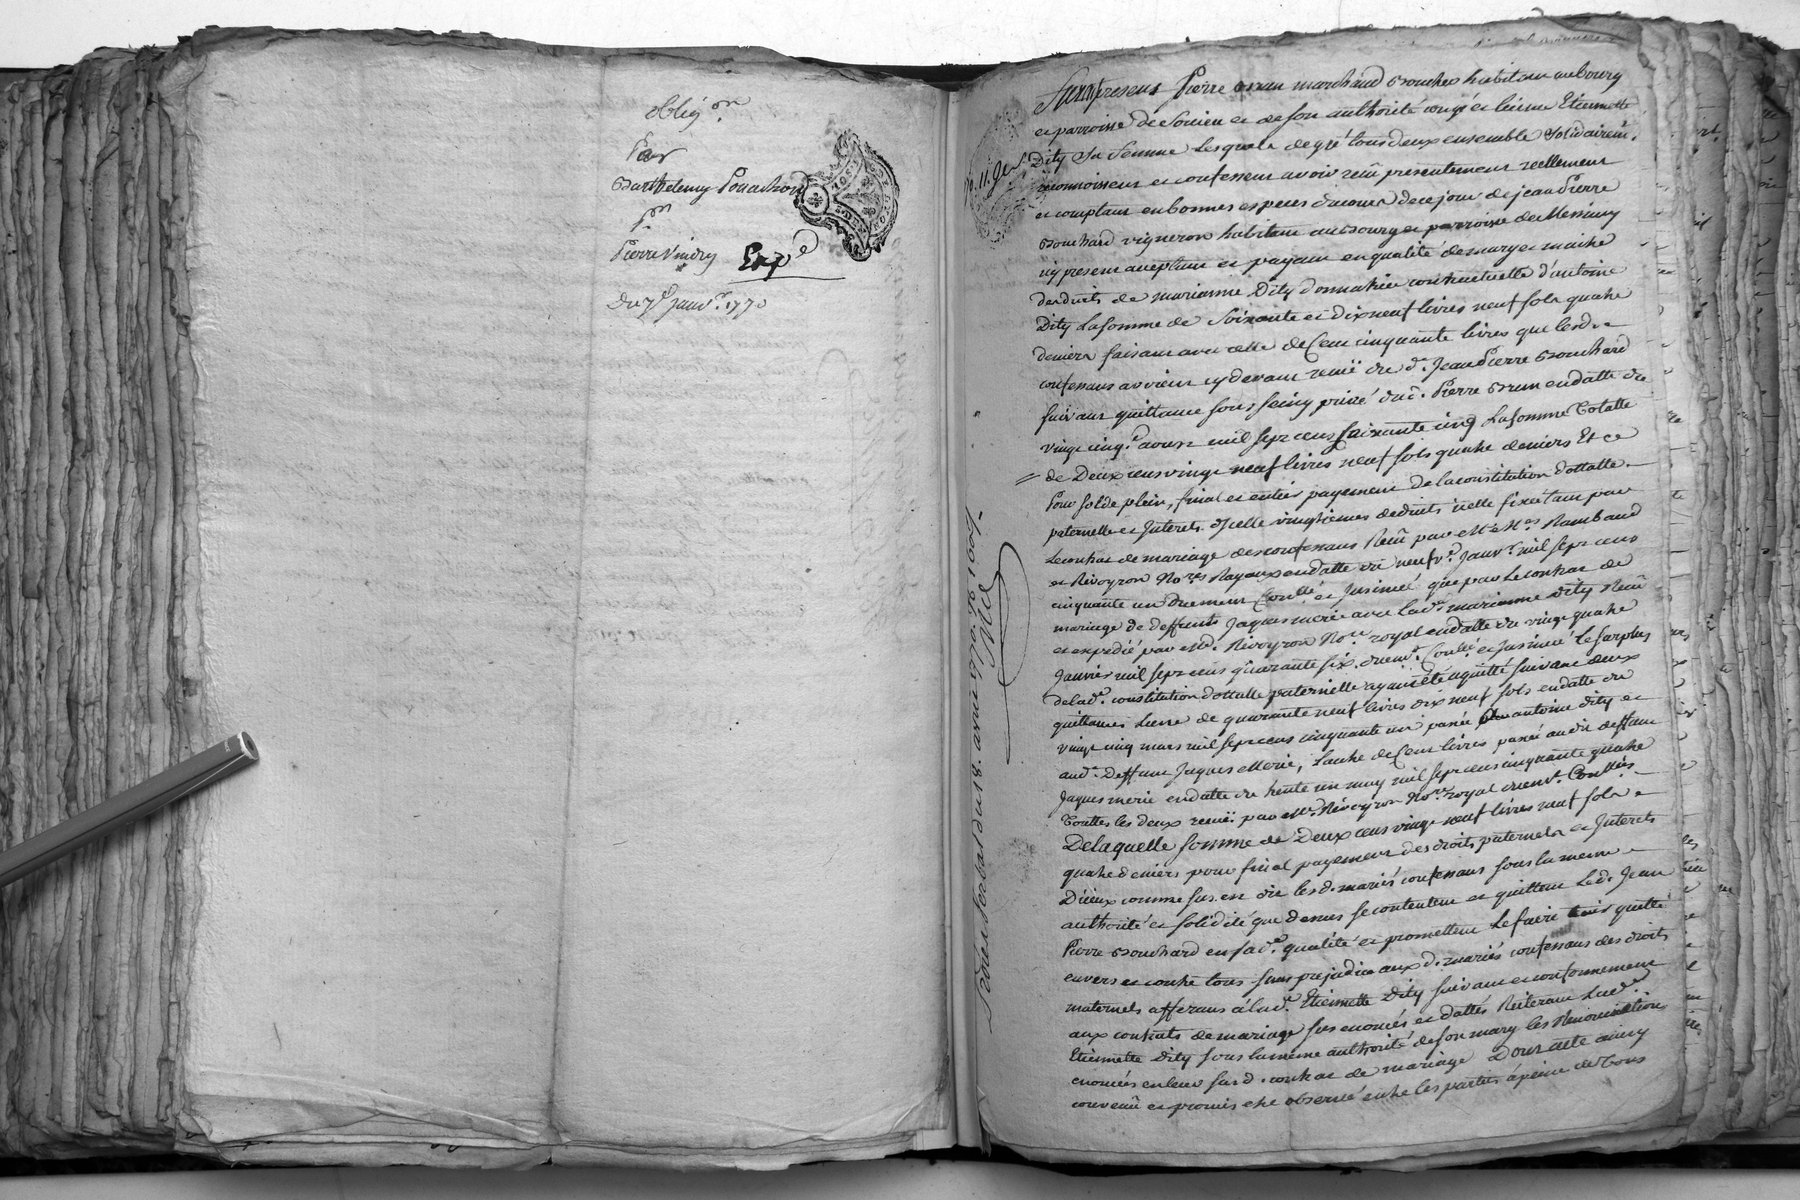 oblig.on
Par
Barthelemy Ponachon
Pierre Vindry
Exp.é
Du 7.e janv.r 1770
Furent presens Pierre Brun marchand Boucher habitant au bourg
et parroisse de Soucieu et de son authorité congé et licence Etiennette
Dity sa femme lesquels de gré tous deux ensemble solidairem.t
reconnoissent et confessent avoir reçû presentement reellement
et comptant en bonnes especes d'acourt de ce jour de jean Pierre
Bouchard vigneron habitant au Bourg et parroisse de Messimy
icy present acceptant et payant en qualité de mary et maitre
des droits de marianne Dity donnatrice contractuelle d'antoine
Dity La somme de Soixante et dix neuf livres neuf sols quatre
deniers faisant avec celle de Cent cinquante livres que lesd.
confessans avoient cy devant reçuë du d. Jean Pierre Bouchard
suivant quittance sous seing privé dud. Pierre Brun en datte du
vingt cinq.e aoust mil sept cens soixante cinq La somme Totalle
de Deux cens vingt neuf livres neuf sols quatre deniers Et ce
Pour solde plein, final et entier payement de la constitution dottalle
paternelle et Interets d'icelle vingtiemes deduits icelle fixée tant par
Le contrat de mariage des confessans Reçû par Me Rambaud
et Rivoyron No.res Royaux en datte du neuf.e Janv.r mil sept cens
cinquante un Duement Contlé et Insinué que par Le contrat de
mariage de deffunt Jaques merie avec lad.e marianne Dity Reçû
et expedié par Me. Rivoyron No.re royal en datte du vingt quatre
Janvier mil sept cens quarante six duem.t Contlé et Insinué Le surplus
de lad.e constitution dottalle paternelle ayant été aquitté suivant deux
quittances L'une de quarante neuf livres dix neuf sols en datte du
vingt cinq mars mil sept cens cinquante un passée par antoine Dity et
aud. Deffunt Jaques Merie, L'autre de Cent livres passée audit deffunt
Jaques merie en datte du trente un may mil sept cens cinquante quatre
Touttes les deux reçuës par Me. Rivoyron No.re royal duem.t Contlées
De laquelle somme de Deux cens vingt neuf livres neuf sols
quatre deniers pour final payement des droits paternels et Interets
D'iceux comme sus est dit les d. mariés confessans sous la meme
authorité et solidité que dessus se contentent et quittent Led. Jean
Pierre Bouchard en sad.e qualité et promettent Le faire tenir quitte
envers et contre tous sans prejudice aux d. mariés confessans des droits
maternels afferans à lad.e Etiennette Dity suivant et conformement
aux contrats de mariage sus enoncés et dattés Reiterant Lad.e
Etiennette Dity sous la meme authorité de son mary les Renonciations
enoncées en leur susd. contrat de mariage Dont acte ainsy
convenû et promis etre observé entre les parties à peine de Tous